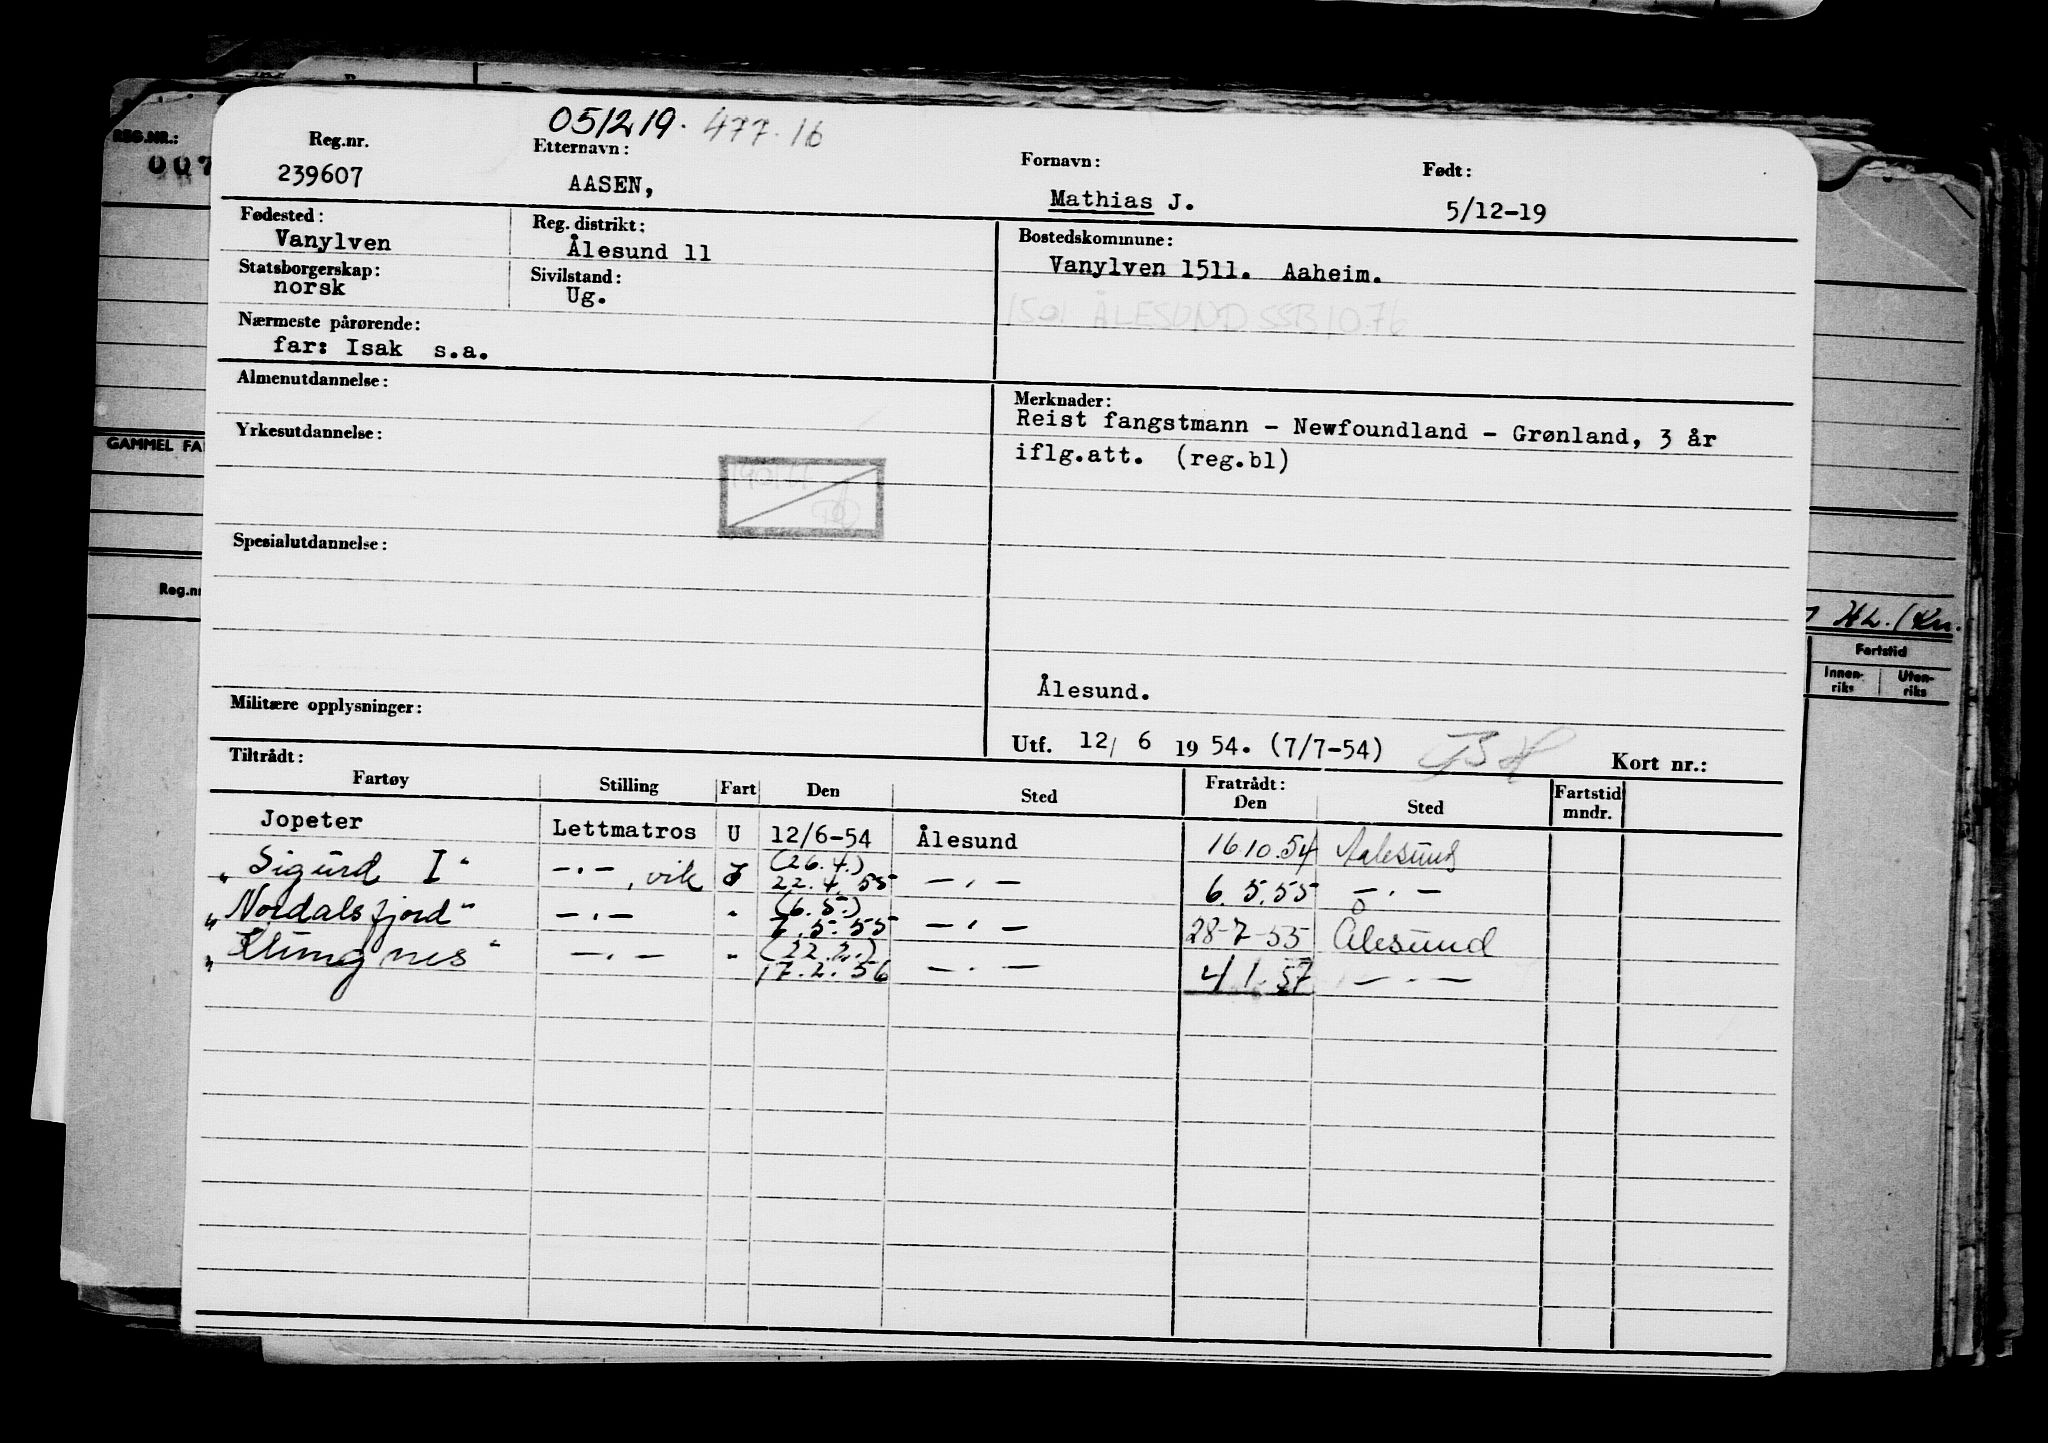 051219. 477.16
Reg.nr. Etternavn: Fornavn: Født:
239607 AASEN, Mathias J. 5/12-19
Fødested: Reg. distrikt: Bostedskommune:
Vanylven Ålesund 11 Vanylven 1511. Aaheim.
Statsborgerskap: Sivilstand:
norsk Ug.
1501 ÅLESUND SSB 10.76
Nærmeste pårørende:
far: Isak s.a.
Almenutdannelse: Merknader:
Reist fangstmann - Newfoundland - Grønland, 3 år
Yrkesutdannelse: iflg.att. (reg.bl)
Spesialutdannelse:
Ålesund.
Militære opplysninger:
Utf. 12/ 6 1954. (7/7-54) Kort nr.:
Tiltrådt: Fratrådt:
Fartøy Stilling Fart Den Sted Den Sted Fartstid mndr.
Jopeter Lettmatros U 12/6-54 Ålesund 16.10.54 Aalesund
"Sigurd I" -"-, vik (26.4.) 22.4.55 -"- 6.5.55 -"-
"Nordalsfjord" -"- " (6.5.) 7.5.55 -"- 28-7-55 Ålesund
"Klungnes" -"- " (22.2.) 17.2.56 -"- 4/1.57 -"-
REG.NR.:
007
GAMMEL FA
Reg.nr
Fartstid
Innen-riks Uten-riks